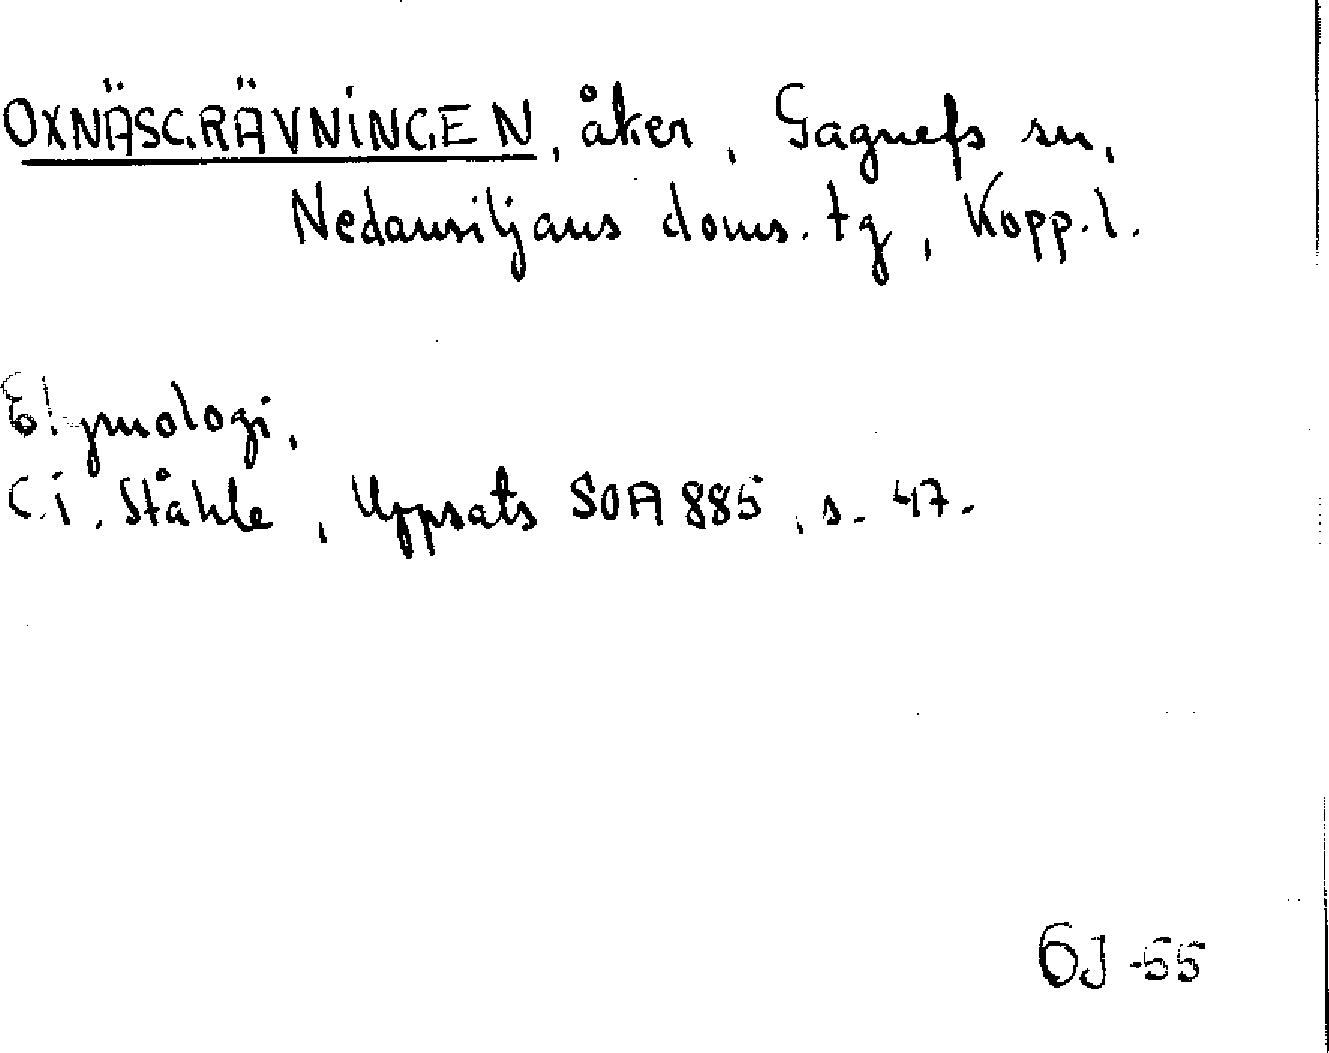 OXNÄSGRÄVNINGEN, åker, Gagnefs sn,
Nedansiljans doms. tg, Kopp. l.
Etymologi,
C.I. Ståhle, Uppsats SOA 885, s. 47.
GJ -55